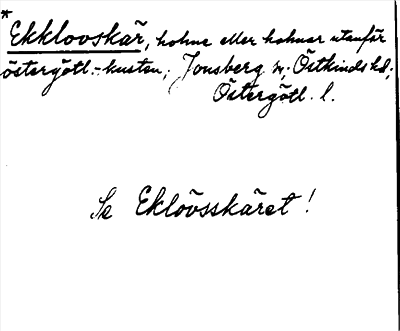 *
Ekklovskär, holme eller holmar utanför
östergötl.-kusten; Jonsberg sn; Östkinds hd;
Östergötl. l.
Se Eklövsskäret!